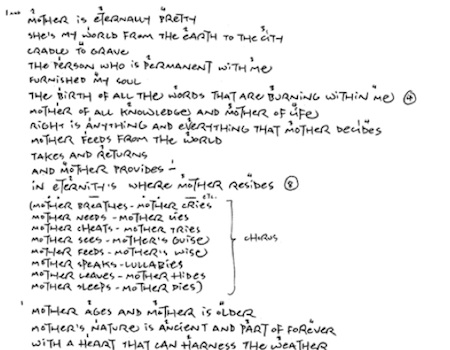 MOTHER IS ETERNALLY PRETTY
SHE'S MY WORLD FROM THE EARTH TO THE CITY
CRADLE TO GRAVE
THE PERSON WHO IS PERMANENT WITH ME
FURNISHED MY SOUL
THE BIRTH OF ALL THE WORDS THAT ARE BURNING WITHIN ME 4
MOTHER OF ALL KNOWLEDGE AND MOTHER OF LIFE
RIGHT IS ANYTHING AND EVERYTHING THAT MOTHER DECIDES
MOTHER FEEDS FROM THE WORLD
TAKES AND RETURNS
AND MOTHER PROVIDES -
IN ETERNITY'S WHERE MOTHER RESIDES 8
(MOTHER BREATHES - MOTHER CRIES etc.
MOTHER NEEDS - MOTHER LIES
MOTHER CHEATS - MOTHER TRIES
MOTHER SEES - MOTHER'S GUISE
MOTHER FEEDS - MOTHER'S WISE
MOTHER SPEAKS - LULLABIES
MOTHER LEAVES - MOTHER HIDES
MOTHER SLEEPS - MOTHER DIES)
CHORUS
MOTHER AGES AND MOTHER IS OLDER
MOTHER'S NATURE IS ANCIENT AND PART OF FOREVER
WITH A HEART THAT CAN HARNESS THE WEATHER